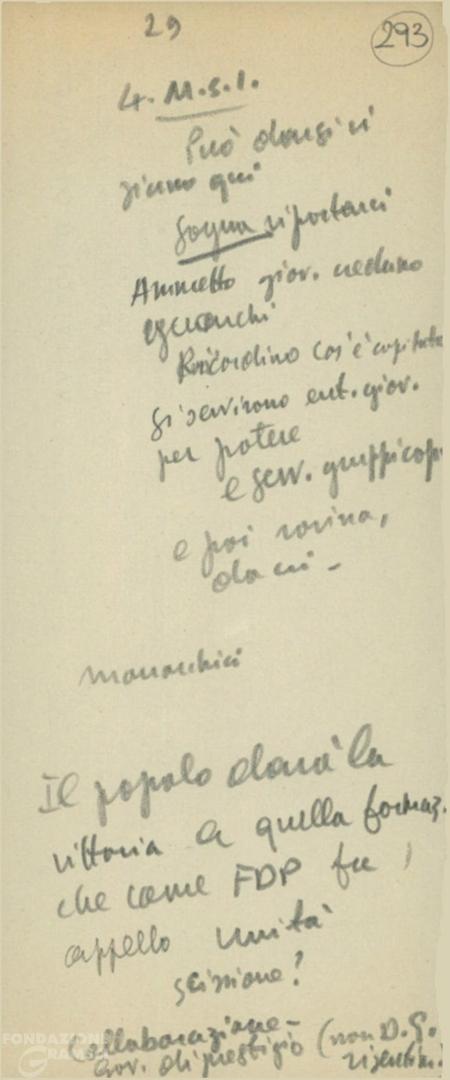 29
293
4. M.S.I.
Può darsi vi
siano qui
Sogna riportarci
Ammetto giov. vedano
Ricordino cos'è capitato
Si servirono ent. giov.
per potere
e serv. gruppi cap
e poi rovina,
da cui -
monarchici
Il popolo darà la
vittoria a quella formaz.
che come FDP fa
appello unità
scissione?
Collaborazione -
Gov. di prestigio (non D.G.
FONDAZIONE
GRAMSCI